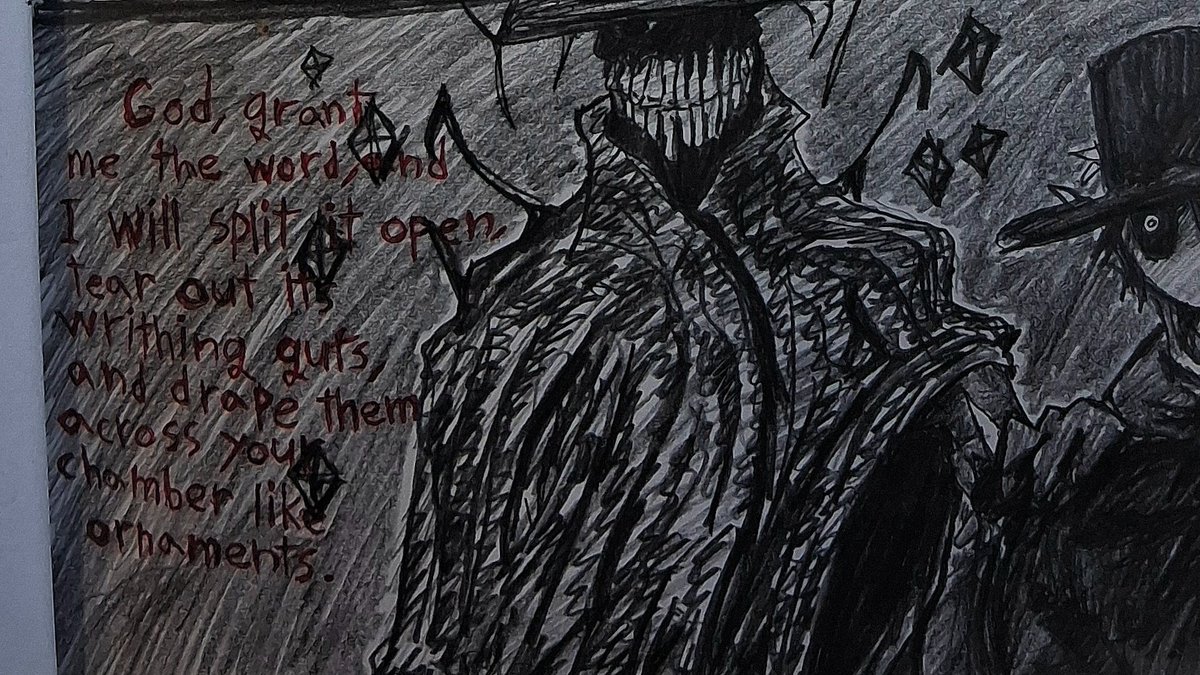 God, grant
me the word, and
I will split it open,
tear out its
writhing guts,
and drape them
across your
chamber like
ornaments.